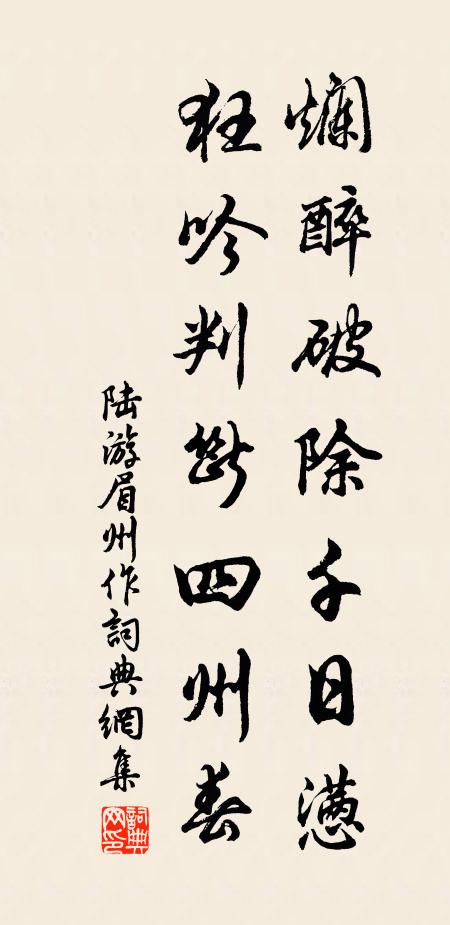 爛醉破除千日懣
狂吟判斷四州春
陸游眉州作詞典網集
詞典網印